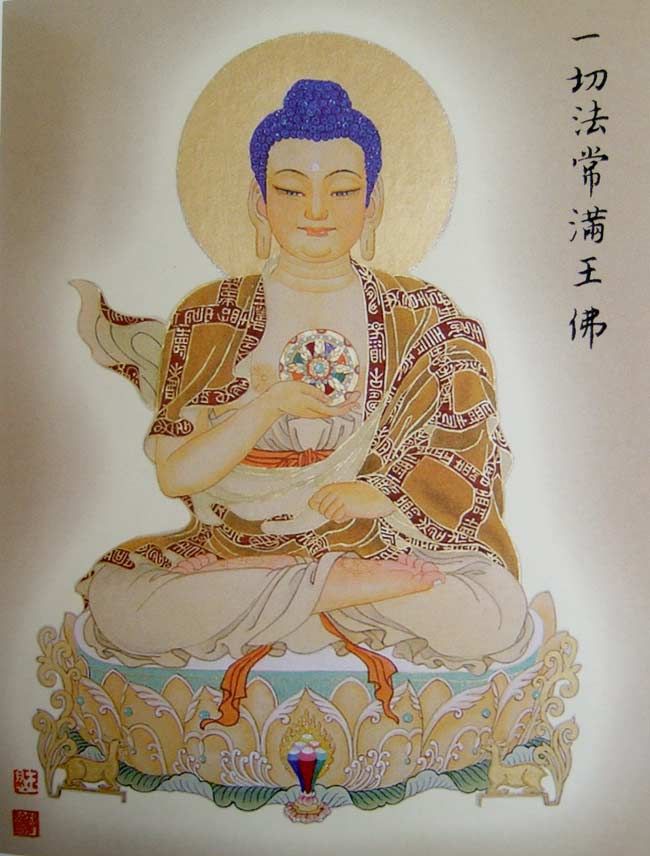 一切法常滿王佛